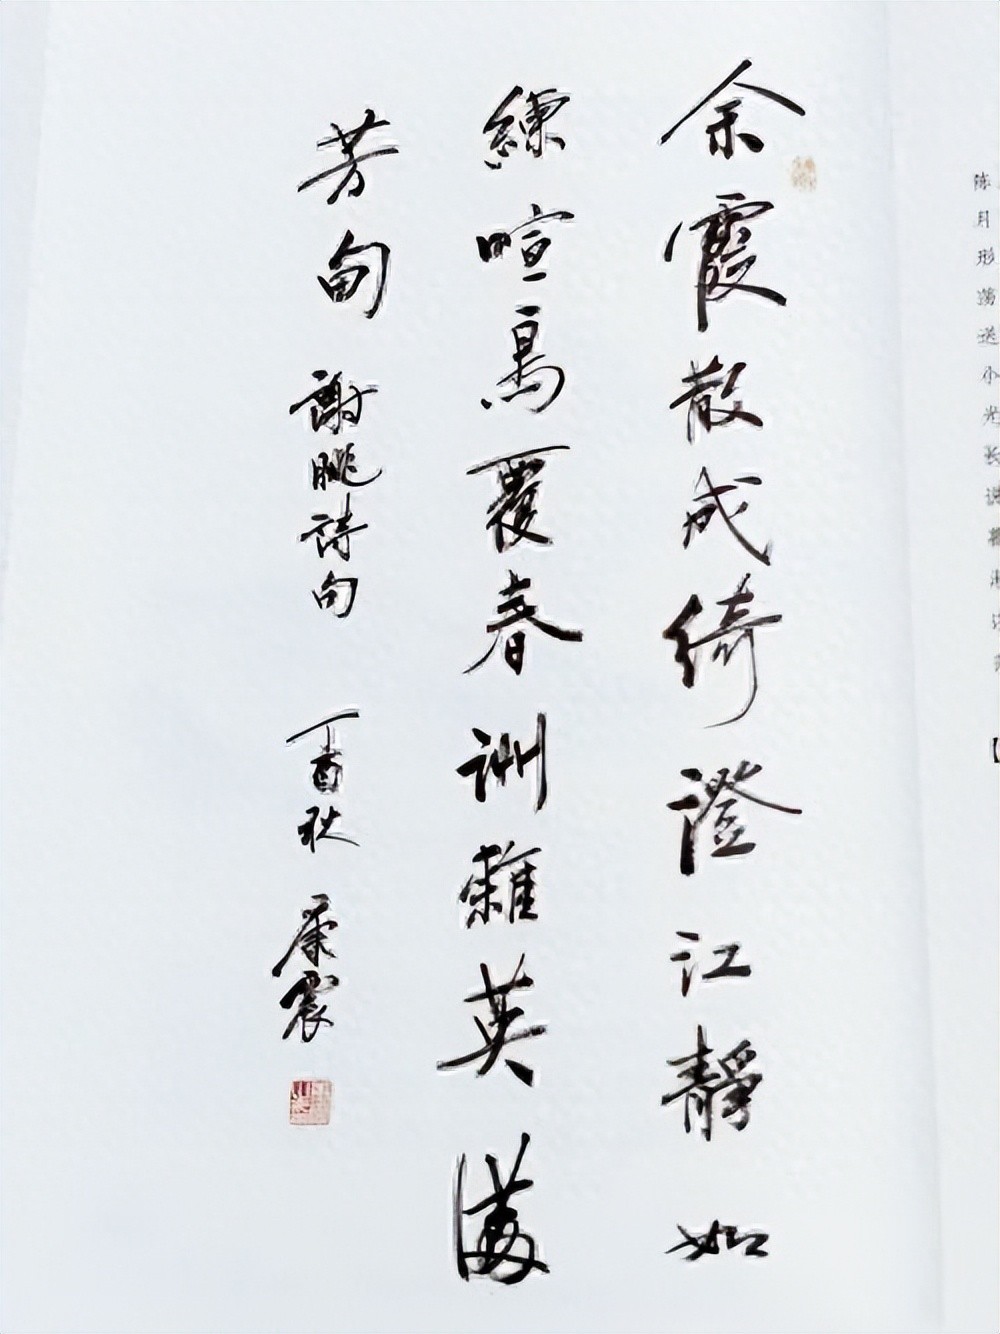 余霞散成綺澄江靜如
練喧鳥覆春洲雜英滿
芳甸 謝朓詩句 丁酉秋 康震
陈
月
形
荡
送
小
光
长